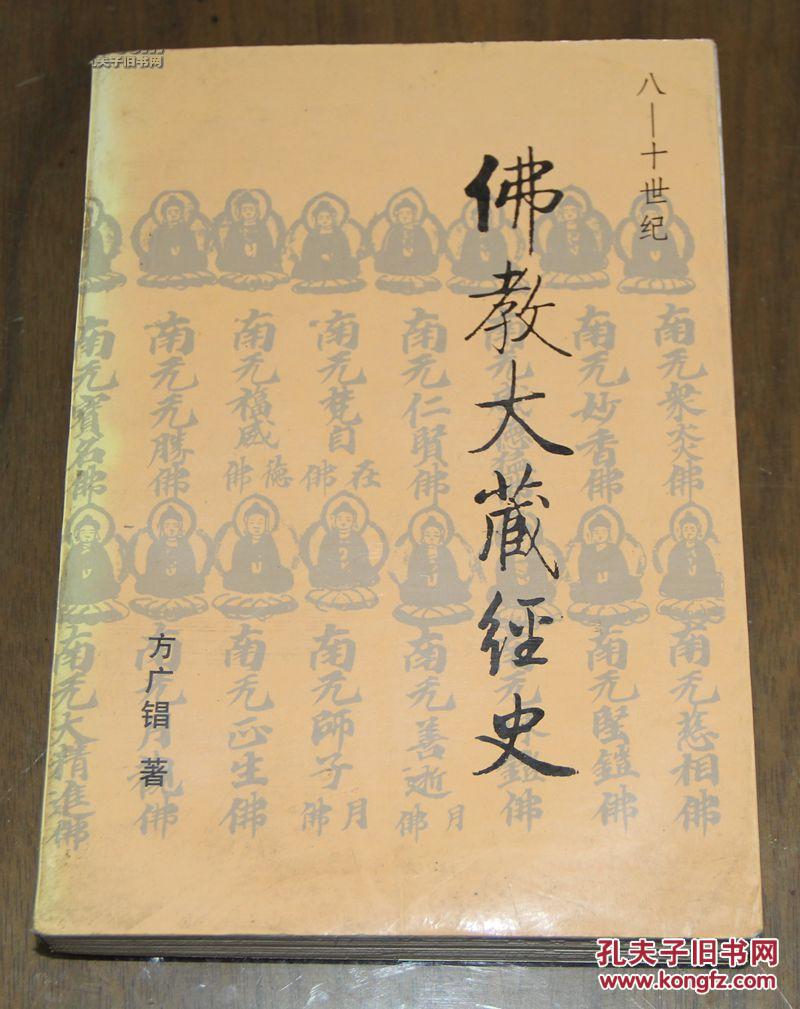 孔夫子旧书网
八—十世纪
佛教大藏經史
方广锠 著
南无衆炎佛
南无妙香佛
南无仁賢佛
南无梵自在佛
南无福威德佛
南无无勝佛
南无寳名佛
南无慈相佛
南无堅鎧佛
鎧佛
南无善逝月佛
南无師子月佛
南无正生佛
南无大精進佛
孔夫子旧书网
www.kongfz.com